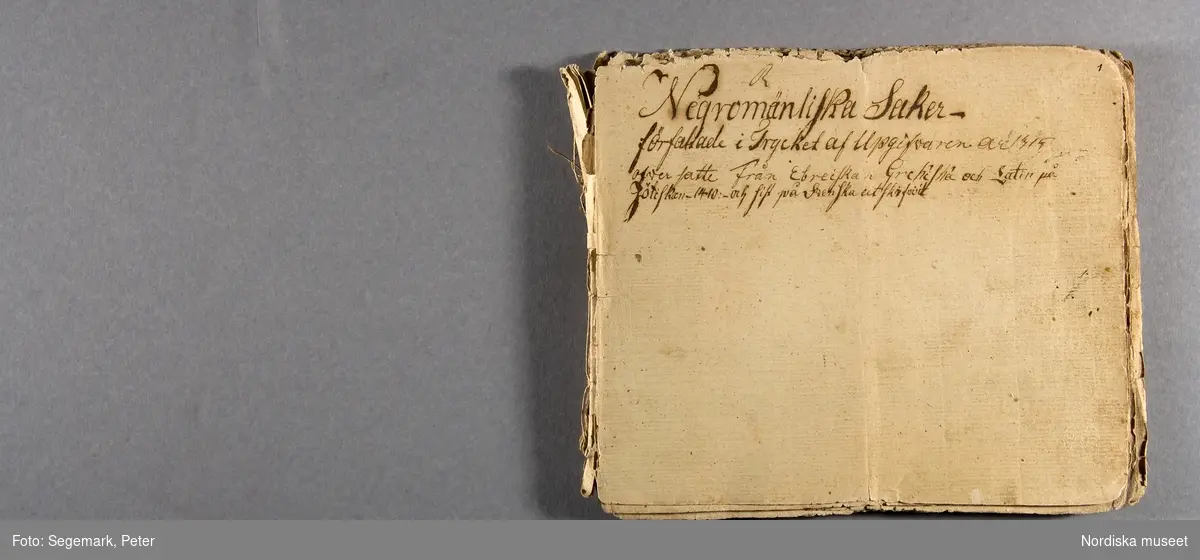 1
Negromänliska Saker
författade i Trycket af Upgifvaren
öfversatte Från Ebreiskan Grekiska och Latin på
Jötiskan 1410 och sist på Svenska utskrifvit
Foto: Segemark, Peter
Nordiska museet